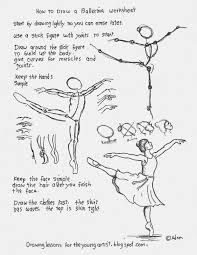 How to Draw a Ballerina Worksheet
Start by drawing lightly so you can erase later.
Use a stick figure with joints to start.
Draw around the stick figure
to build up the body
give curves for muscles and
joints.
Keep the hands
Simple
Keep the face simple
draw the hair after you finish
the face.
Draw the clothes last. The skirt
has waves. the top is skin tight.
Drawing lessons for the young artist. blog spot. com